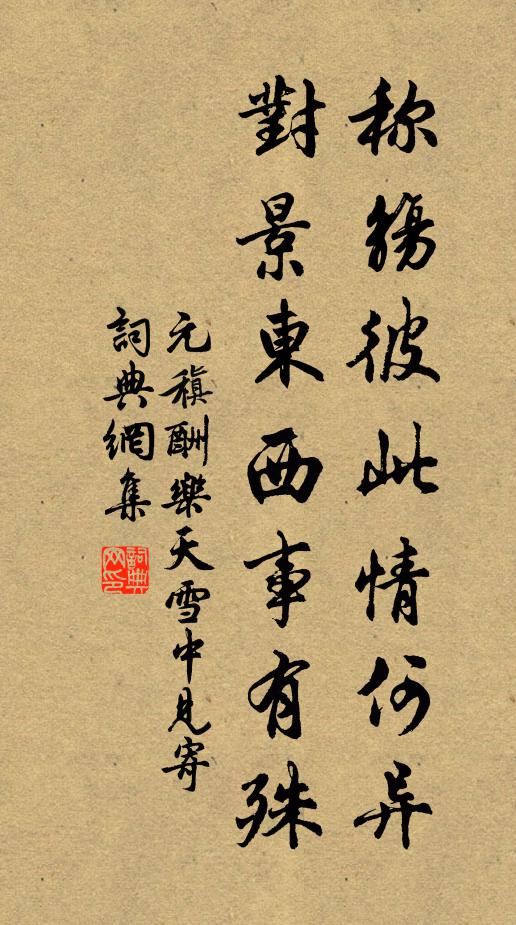 称觴彼此情何异
對景東西事有殊
元稹酬樂天雪中見寄
詞典網集
詞典网印